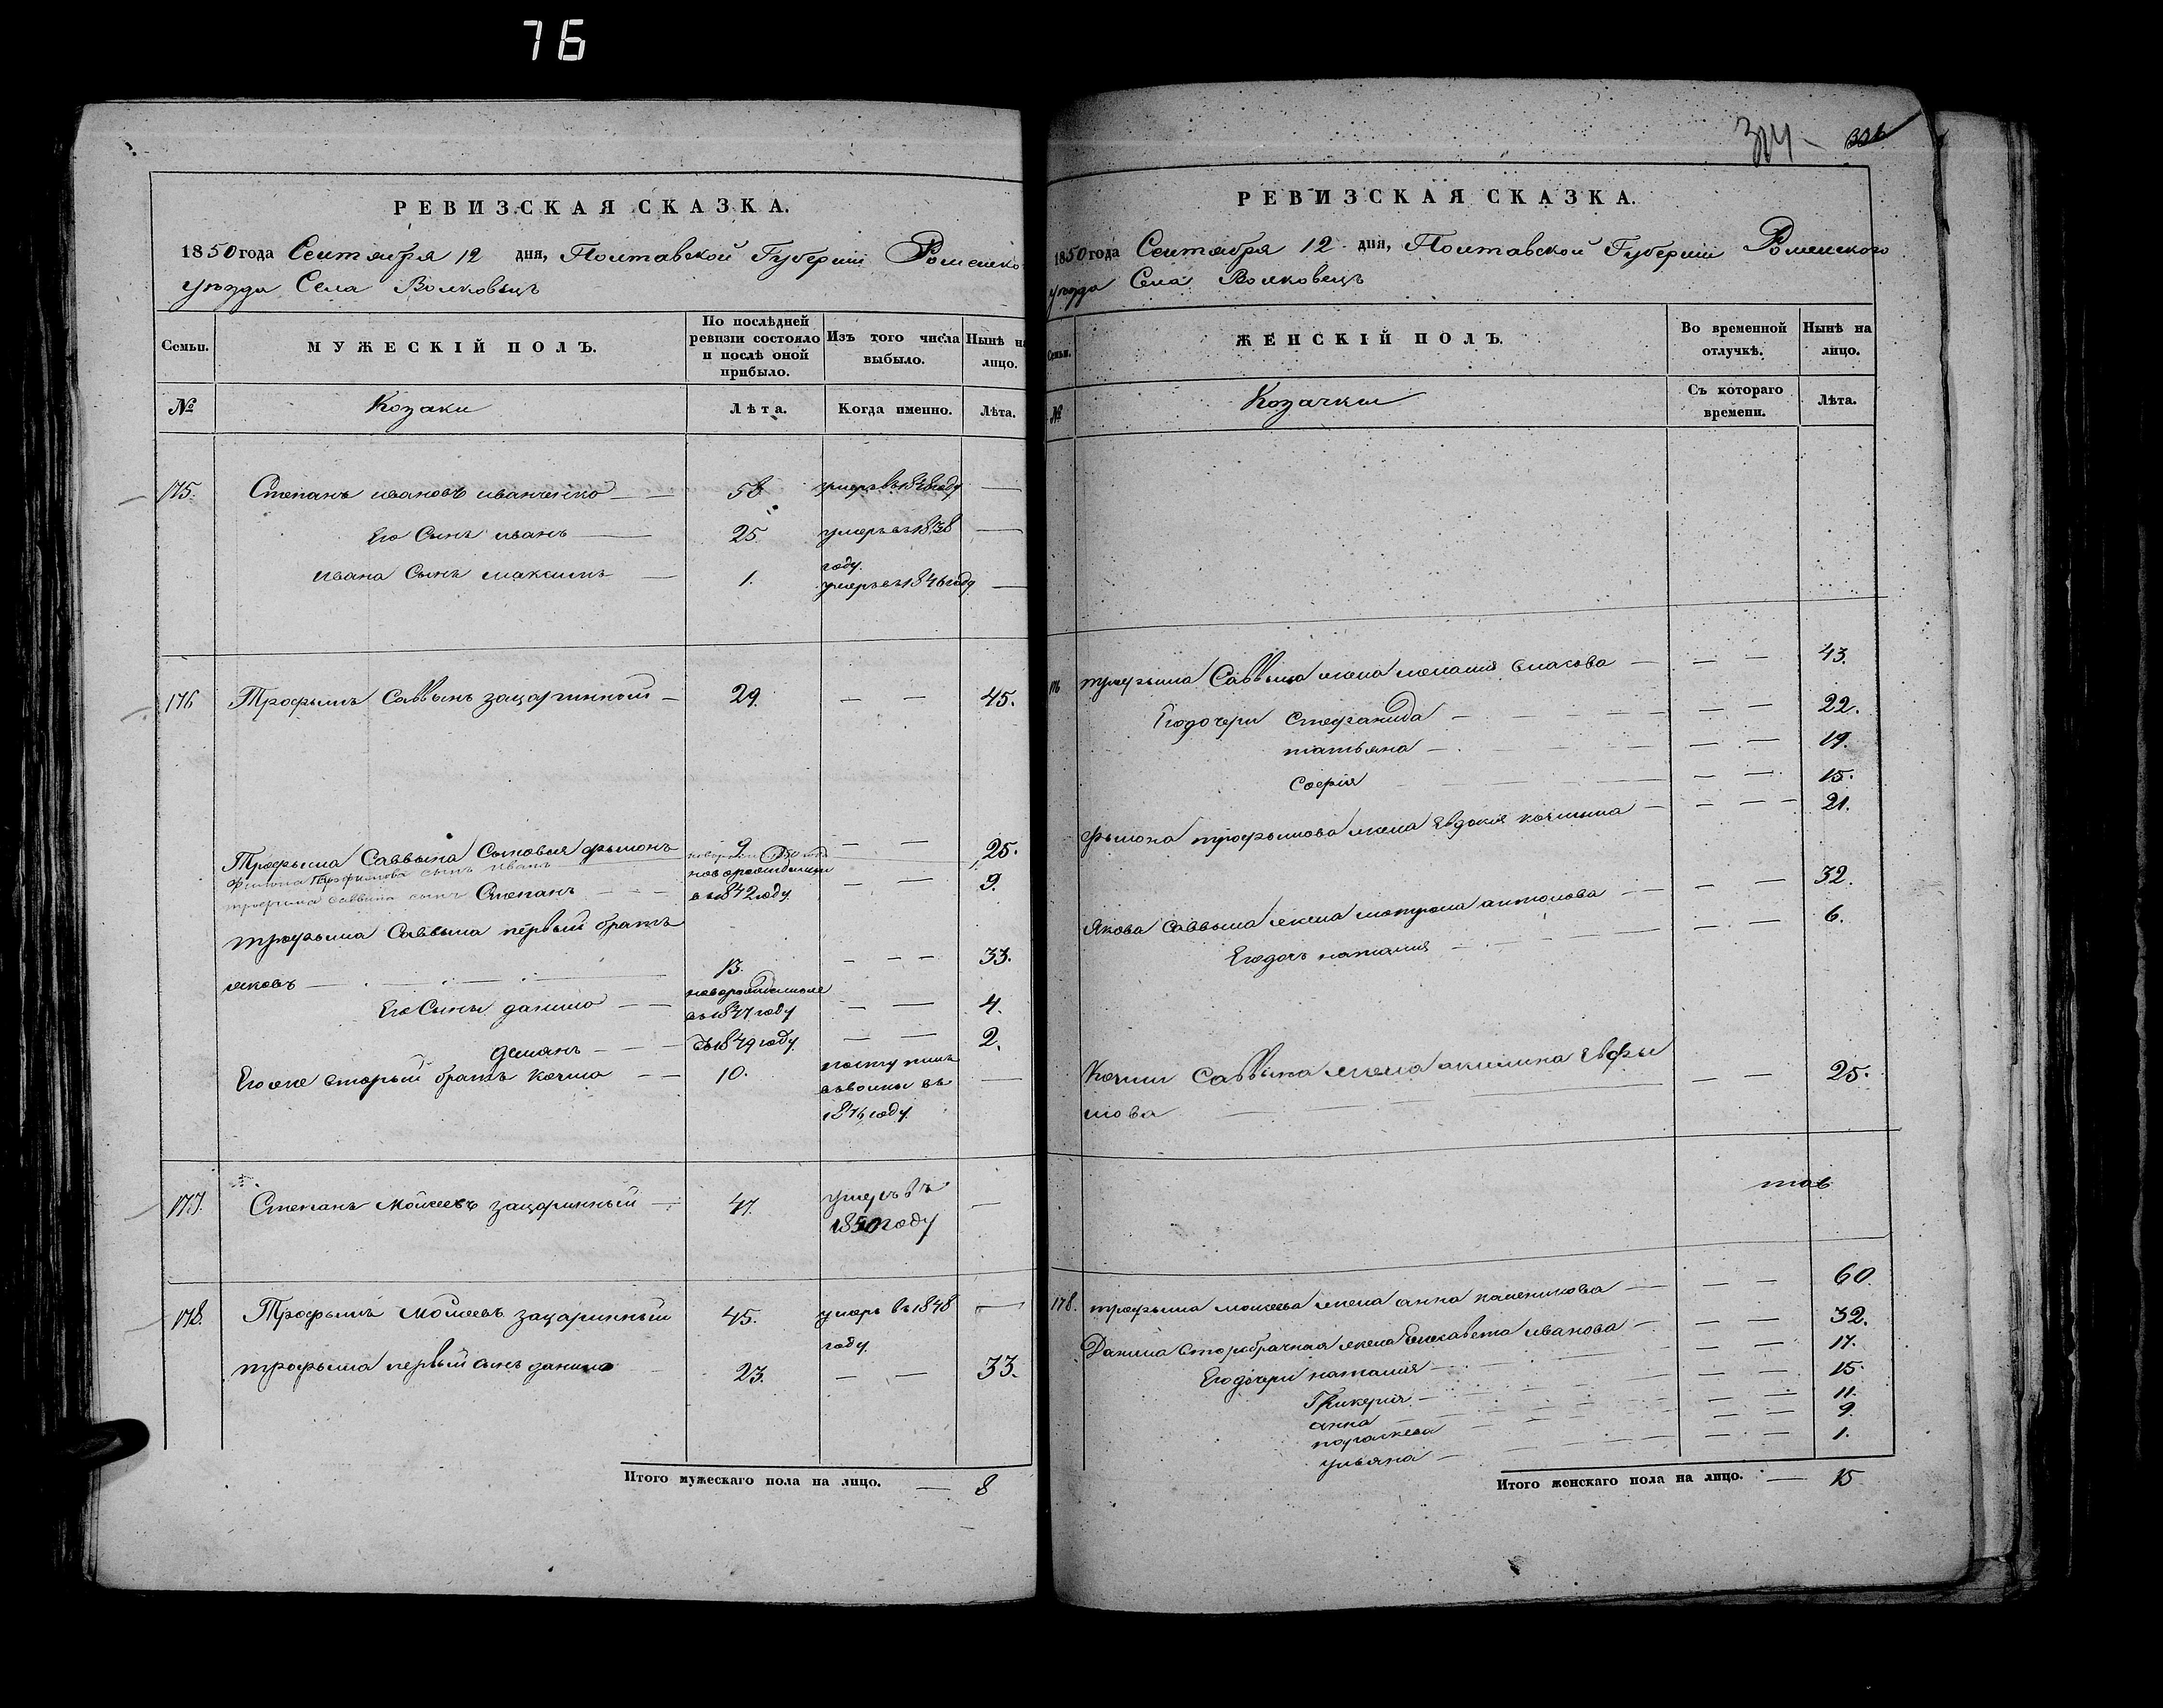 76
РЕВИЗСКАЯ СКАЗКА.
1850 года Сентября 12 дня, Полтавской Губерніи Роменско
уѣзда Села Волковецъ
Семьи.
МУЖЕСКІЙ ПОЛЪ.
По послѣдней ревизіи состояло и послѣ оной прибыло.
Изъ того числа выбыло.
Нынѣ на лицо.
№ Козаки Лѣта. Когда именно. Лѣта.
175. Степанъ ивановъ иванченко 58 умеръ въ 1848 году
Его Сынъ иванъ 25. умеръ въ 1838
году.
ивана Сынъ максимъ 1. умеръ въ 1846 году
176 Трофымъ Саввынъ зацаринный 29. 45.
Трофыма Саввына Сыновья фылонъ 9 25.
Филона Трофимова сынъ Иванъ
трофима саввина сынъ Степанъ новорожденный 9.
въ 1842 году
трофыма Саввына первый братъ
яковъ 13. 33.
новорожденные
Его Сыны данило въ 1847 году 4.
демянъ въ 1849 году. 2.
Его же вторый братъ кочма 10. поступилъ
въ воины въ
1846 году.
177. Степанъ Мойсеевъ зацаринный 47. умеръ въ
1850 году
178. Трофымъ Мойсеевъ зацаринный 45. умеръ въ 1848
году.
трофыма первый сынъ данило 23. 33.
Итого мужескаго пола на лицо. 8
304
РЕВИЗСКАЯ СКАЗКА.
1850 года Сентября 12 дня, Полтавской Губерніи Роменского
уѣзда Села Волковецъ
Семьи.
ЖЕНСКІЙ ПОЛЪ.
Во временной отлучкѣ.
Нынѣ на лицо.
№ Козачки Съ котораго времени. Лѣта.
176 трофыма Саввына жена меланія власова 43.
Его дочери Стефанида 22.
татьяна 19.
Софія 15.
фылона трофымова жена Явдокія кочмына 21.
якова саввына жена мотрона антонова 32.
Его дочь наталия 6.
Кочмы Саввына жена акилина Евфы
мова 25.
178. трофыма мойсеева жена анна каленикова 60.
Данила второбрачная жена Елисавета иванова 32.
Его дочери наталия 17.
Гликерія 15.
анна 11.
параскева 9.
ульяна 1.
Итого женскаго пола на лицо. 15